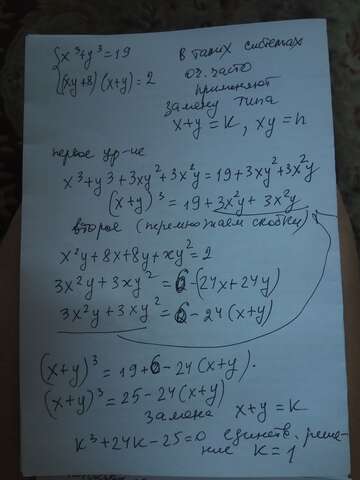 x³+y³=19
(xy+8)(x+y)=2
в таких системах
оч. часто
применяют
замену типа
x+y=k, xy=n
первое ур-ие
x³+y³+3xy²+3x²y=19+3xy²+3x²y
(x+y)³=19+3x²y+3x²y
второе (перемножаем скобки)
x²y+8x+8y+xy²=2
3x²y+3xy²=6-(24x+24y)
3x²y+3xy²=6-24(x+y)
(x+y)³=19+6-24(x+y).
(x+y)³=25-24(x+y)
замена x+y=k
k³+24k-25=0 единств. реше-
ние k=1